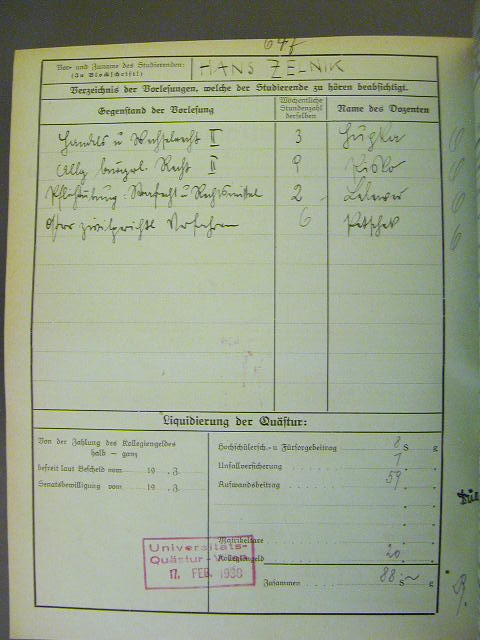 647
Vor- und Zuname des Studierenden:
(In Blockschrift!)
HANS ZELNIK
Verzeichnis der Vorlesungen, welche der Studierende zu hören beabsichtigt.
Gegenstand der Vorlesung
Wöchentliche Stundenzahl derselben
Name des Dozenten
Handels u Wechselrecht II 3 Hupka
Allg bürgerl. Recht II 9 Pisko
Pflichtübung: Strafrecht u Rechtsmittel 2 Lelewer
Österr zivilgerichtl Verfahren 6 Petschek
Liquidierung der Quästur:
Von der Zahlung des Kollegiengeldes
halb — ganz
befreit laut Bescheid vom 19 . Z.
Senatsbewilligung vom 19 . Z.
Hochschülersch.- u Fürsorgebeitrag 8 S g
Unfallversicherung 1
Aufwandsbeitrag 59
Matrikeltaxe
Kollegiengeld 20
Zusammen 88 S g
Universitäts-
Quästur - Wien
17. FEB. 1938